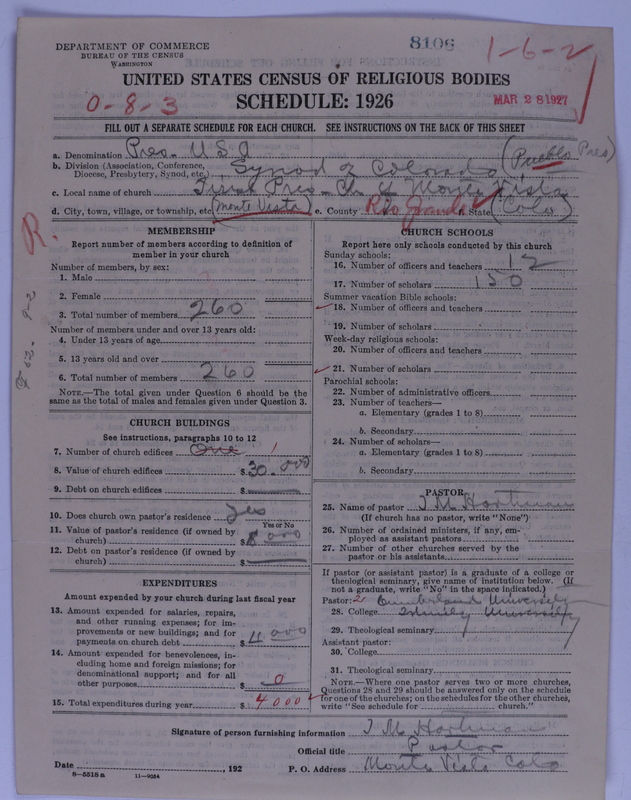 DEPARTMENT OF COMMERCE
BUREAU OF THE CENSUS
WASHINGTON
8106
1-6-2
UNITED STATES CENSUS OF RELIGIOUS BODIES
0-8-3
SCHEDULE: 1926
MAR 28 1927
FILL OUT A SEPARATE SCHEDULE FOR EACH CHURCH. SEE INSTRUCTIONS ON THE BACK OF THIS SHEET
a. Denomination Pres. U.S.A
b. Division (Association, Conference, Diocese, Presbytery, Synod, etc.) Synod of Colorado (Pueblo Pres)
c. Local name of church Pres. Ch of Monte Vista
d. City, town, village, or township, etc. (Monte Vista) e. County Rio Grande f. State (Colo)
R.
MEMBERSHIP
Report number of members according to definition of
member in your church
Number of members, by sex:
1. Male
2. Female
3. Total number of members 260
Number of members under and over 13 years old:
4. Under 13 years of age
5. 13 years old and over
6. Total number of members 260
NOTE.—The total given under Question 6 should be the
same as the total of males and females given under Question 3.
CHURCH BUILDINGS
See instructions, paragraphs 10 to 12
7. Number of church edifices One 1
8. Value of church edifices $ 30.000
9. Debt on church edifices $
10. Does church own pastor's residence? Yes
Yes or No
11. Value of pastor's residence (if owned by
church) $ 8 000
12. Debt on pastor's residence (if owned by
church) $
EXPENDITURES
Amount expended by your church during last fiscal year
13. Amount expended for salaries, repairs,
and other running expenses; for im-
provements or new buildings; and for
payments on church debt $ 4 000
14. Amount expended for benevolences, in-
cluding home and foreign missions; for
denominational support; and for all
other purposes $ 0
15. Total expenditures during year $ 4000
CHURCH SCHOOLS
Report here only schools conducted by this church
Sunday schools:
16. Number of officers and teachers 12
17. Number of scholars 150
Summer vacation Bible schools:
18. Number of officers and teachers
19. Number of scholars
Week-day religious schools:
20. Number of officers and teachers
21. Number of scholars
Parochial schools:
22. Number of administrative officers
23. Number of teachers—
a. Elementary (grades 1 to 8)
b. Secondary
24. Number of scholars—
a. Elementary (grades 1 to 8)
b. Secondary
PASTOR
25. Name of pastor I M Hortman
(If church has no pastor, write "None")
26. Number of ordained ministers, if any, em-
ployed as assistant pastors
27. Number of other churches served by the
pastor or his assistants
If pastor (or assistant pastor) is a graduate of a college or
theological seminary, give name of institution below. (If
not a graduate, write "No" in the space indicated.)
Pastor: 2 Cumberland University
28. College University
29. Theological seminary
Assistant pastor:
30. College
31. Theological seminary
NOTE.—Where one pastor serves two or more churches,
Questions 28 and 29 should be answered only on the schedule
for one of the churches; on the schedules for the other churches,
write "See schedule for church."
Signature of person furnishing information I M Hortman
Official title Pastor
Date , 192 P. O. Address Monte Vista Colo
8—5518a 11—9034